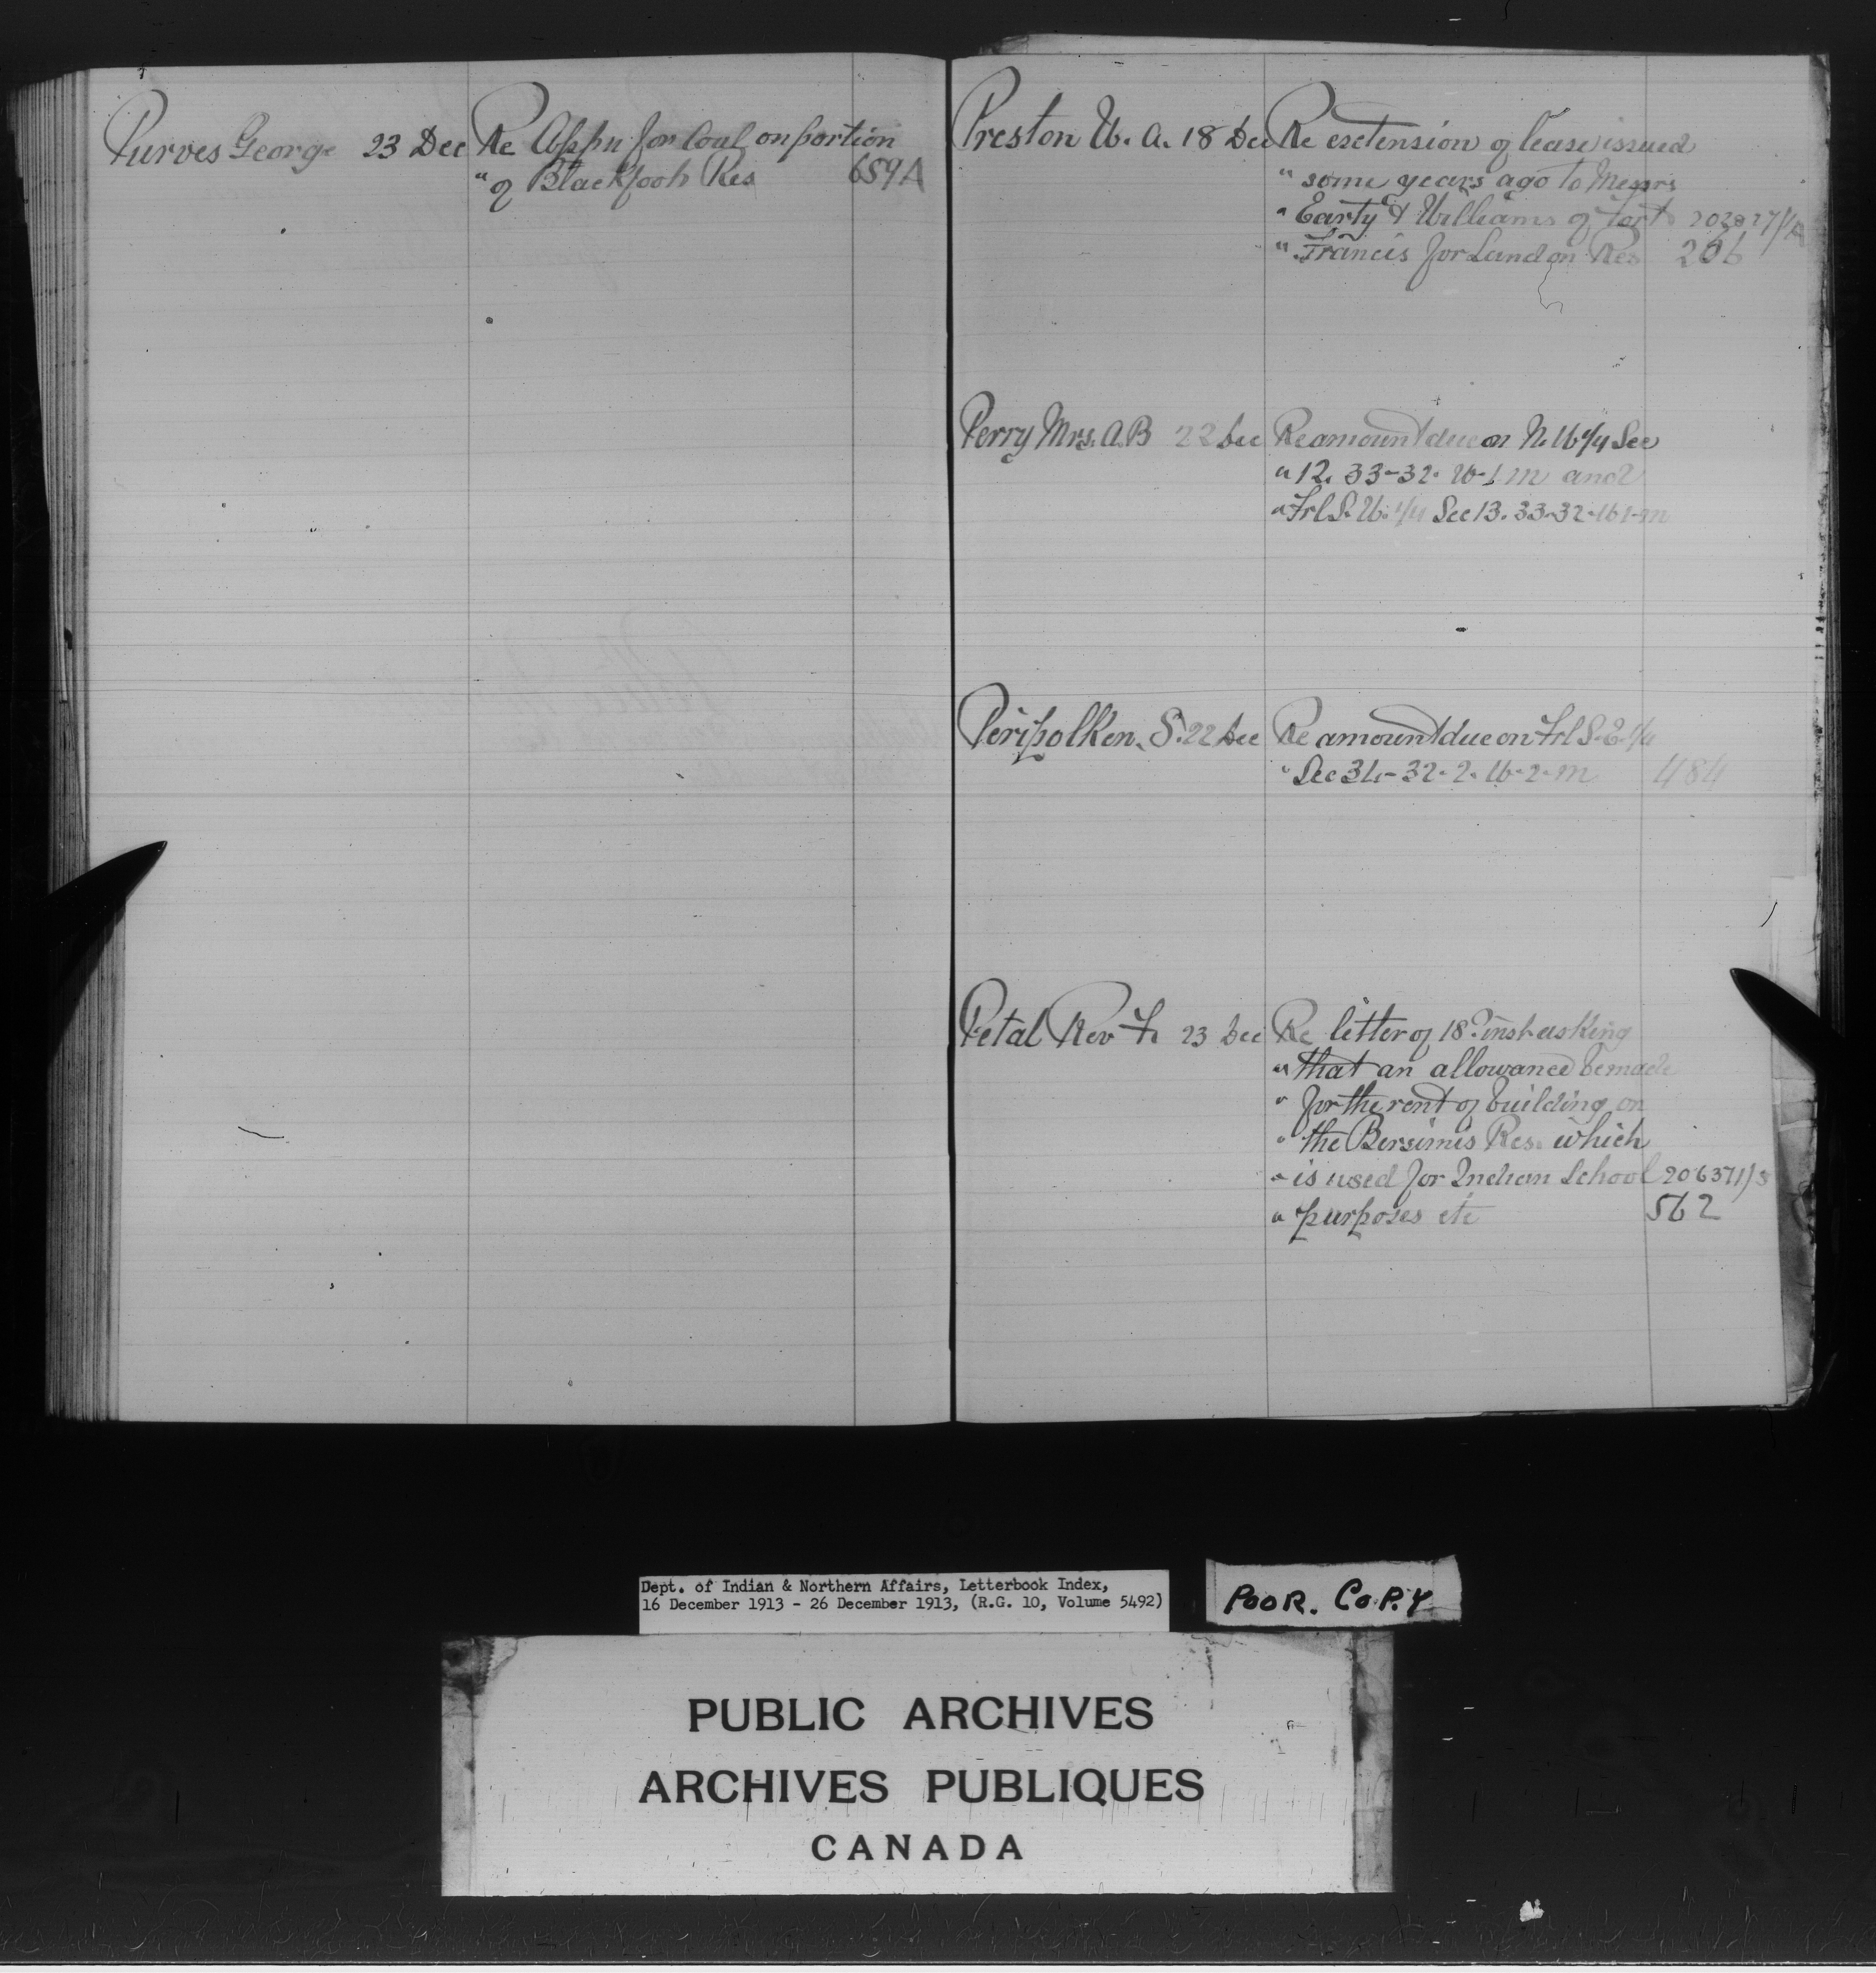 Purves George 23 Dec Re Appn for Coal on portion
" of Blackfoot Res 659A
Preston W. A. 18 Dec Re extension of lease issued
" some years ago to Messrs
" & Williams of Fort 202827/1A
" Francis for Land on Res 206
Perry Mrs. A. B 22 Dec Re amount due on N. W 1/4 Sec
" 12. 33-32. W-1 M and
" Frl S. W. 1/4 Sec 13. 33-32-W 1-M
S. 22 Dec Re amount due on Frl S. E 1/4
" Sec 34-32-2. W-2-M 484
Petal Rev 23 Dec Re letter of 18th inst asking
" that an allowance be made
" for the rent of building on
" the Bersimis Res. which
" is used for Indian School 206371/3
" purposes etc 562
Dept. of Indian & Northern Affairs, Letterbook Index,
16 December 1913 - 26 December 1913, (R.G. 10, Volume 5492)
POOR. COPY
PUBLIC ARCHIVES
ARCHIVES PUBLIQUES
CANADA